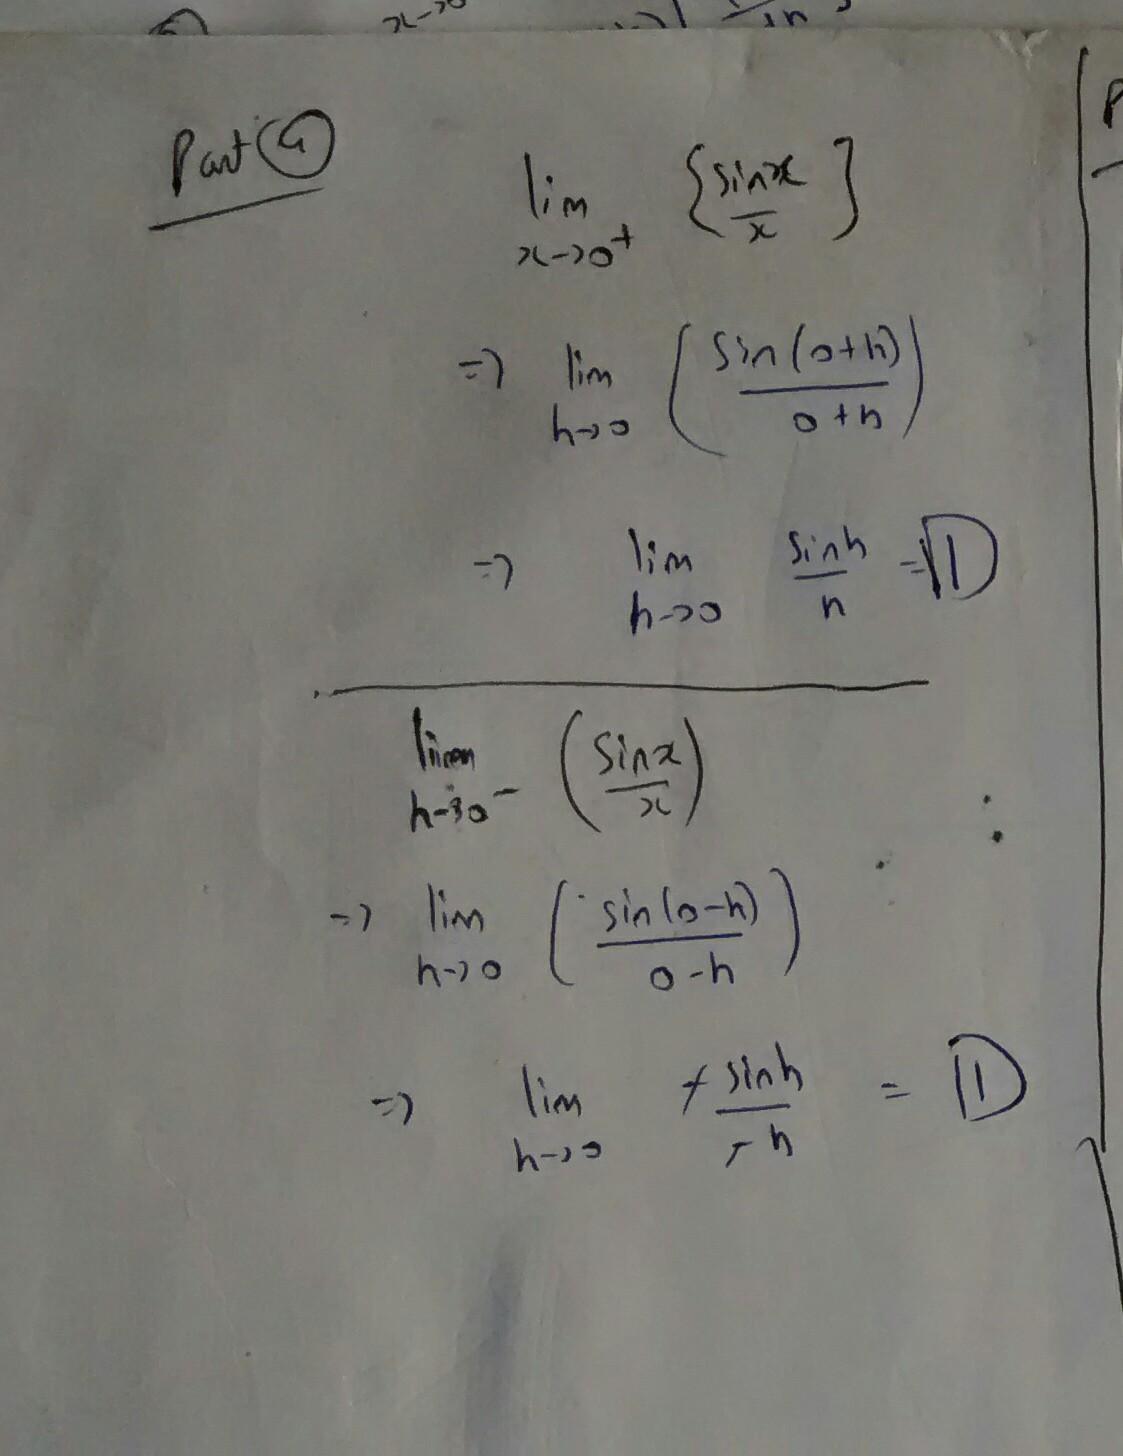 x→0
Part (a)
lim x→0⁺ {sinx/x}
⇒ lim h→0 (sin(0+h)/0+h)
⇒ lim h→0 sinh/h = 1
lim h→0⁻ (sinx/x)
⇒ lim h→0 (sin(0-h)/0-h)
⇒ lim h→0 -sinh/-h = 1